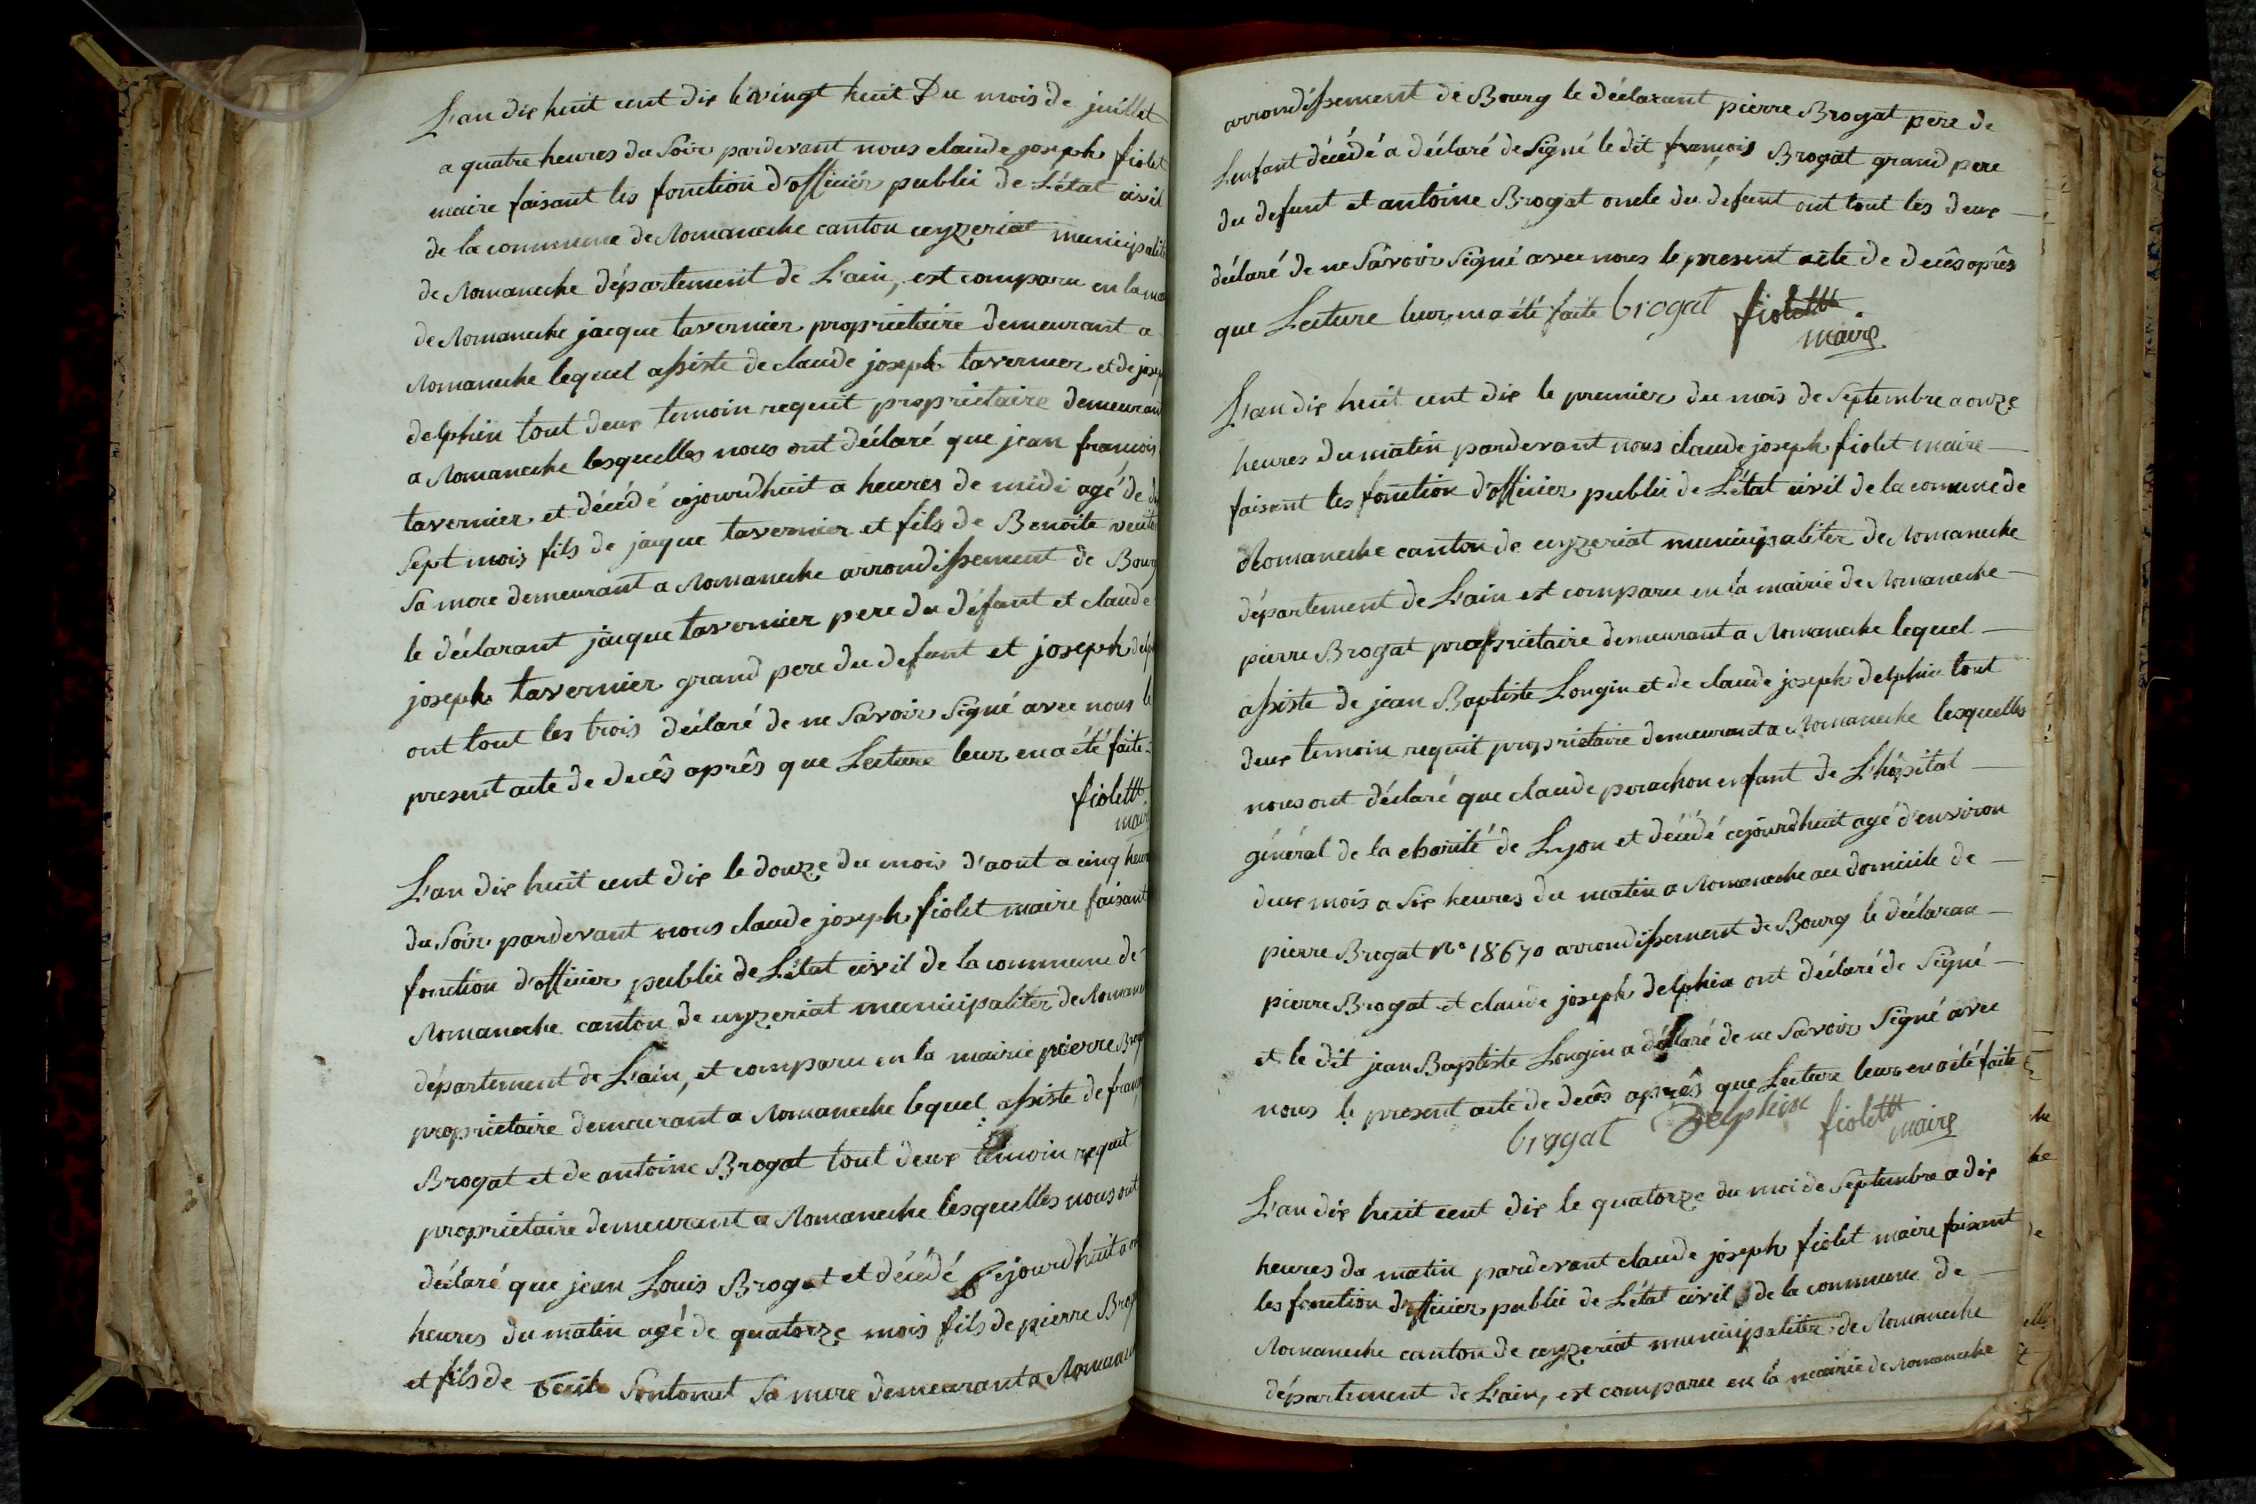 L'an dix huit cent dix le vingt huit Du mois de juillet
a quatre heures du Soir pardevant nous claude joseph fiolet
maire faisant les fonction d'officiér public de L'état civil
de la commune de Romaneche canton ceyzeriat municipalité
de Romaneche département de L'ain, est comparu en la mai
de Romaneche jacque tavernier proprietaire demeurant a
Romaneche lequel assiste de claude joseph tavernier et de josep
delphin tout deux temoin requit proprietaire demeurant
a Romaneche lesquelles nous ont déclaré que jean francois
tavernier et décédé cejourdhuit a heures de midi agé de
Sept mois fils de jacque tavernier et fils de Benoite
Sa mere demeurant a Romaneche arrondissement de Bourg
le déclarant jacque tavernier pere du défunt et claude
joseph tavernier grand pere du defunt et joseph delp
ont tout les trois déclaré de ne Savoir Signé avec nous le
present acte de decês aprês que Lecture leur en a été faite.
fiolettt
maire
L'an dix huit cent dix le douze du mois d'aout a cinq heur
du Soir pardevant nous claude joseph fiolet maire faisant
fonction d'officier public de L'état civil de la commune de
Romaneche canton de ceyzeriat municipaliter de Romane
département de L'ain, et comparu en la mairie pierre Brog
proprietaire demeurant a Romaneche lequel assiste de franç
Brogat et de antoine Brogat tout deux temoin requit
proprietaire demeurant a Romaneche lesquelles nous ont
déclaré que jean Louis Brogat et décédé cejourdhuit a on
heures du matin agé de quatorze mois fils de pierre Brog
et fils de Cecile Sontonat Sa mere demeurant a Romane
arrondissement de Bourg le déclarant pierre Brogat pere de
Lenfant décédé a déclaré de Signé le dit françois Brogat grand pere
du defunt et antoine Brogat oncle du defunt ont tout les deux
déclaré de ne Savoir Signé avec nous le present acte de decês aprês
que Lecture leur en a été faite brogat fiolettt
maire
L'an dix huit cent dix le premier du mois de Septembre a onze
heures du matin pardevant nous claude joseph fiolet maire
faisant les fonction d'officier public de L'état civil de la comune de
Romaneche canton de ceyzeriat municipaliter de Romaneche
département de L'ain est comparu en la mairie de Romaneche
pierre Brogat proprietaire demeurant a Romaneche lequel
assiste de jean Baptiste Longin et de claude joseph delphin tout
deux temoin requit proprietaire demeurant a Romaneche lesquelles
nous ont déclaré que claude perachon enfant de L'hôpital
général de la charité de Lyon et décédé cejourdhuit agé d'environ
deux mois a Six heures du matin a Romaneche au domicile de
pierre Brogat N° 18670 arrondissement de Bourg le déclaran
pierre Brogat et claude joseph delphin ont déclaré de Signé
et le dit jean Baptiste Longin a déclaré de ne Savoir Signé avec
nous le present acte de decês aprês que Lecture leur en a été faite
brogat Delphin fiolettt
maire
L'an dix huit cent dix le quatorze du moi de Septembre a dix
heures du matin pardevant claude joseph fiolet maire faisant
les fonction d'officier public de L'état civil de la commune de
Romaneche canton de ceyzeriat municipalitér de Romaneche
département de L'ain, est comparu en la mairie de Romaneche